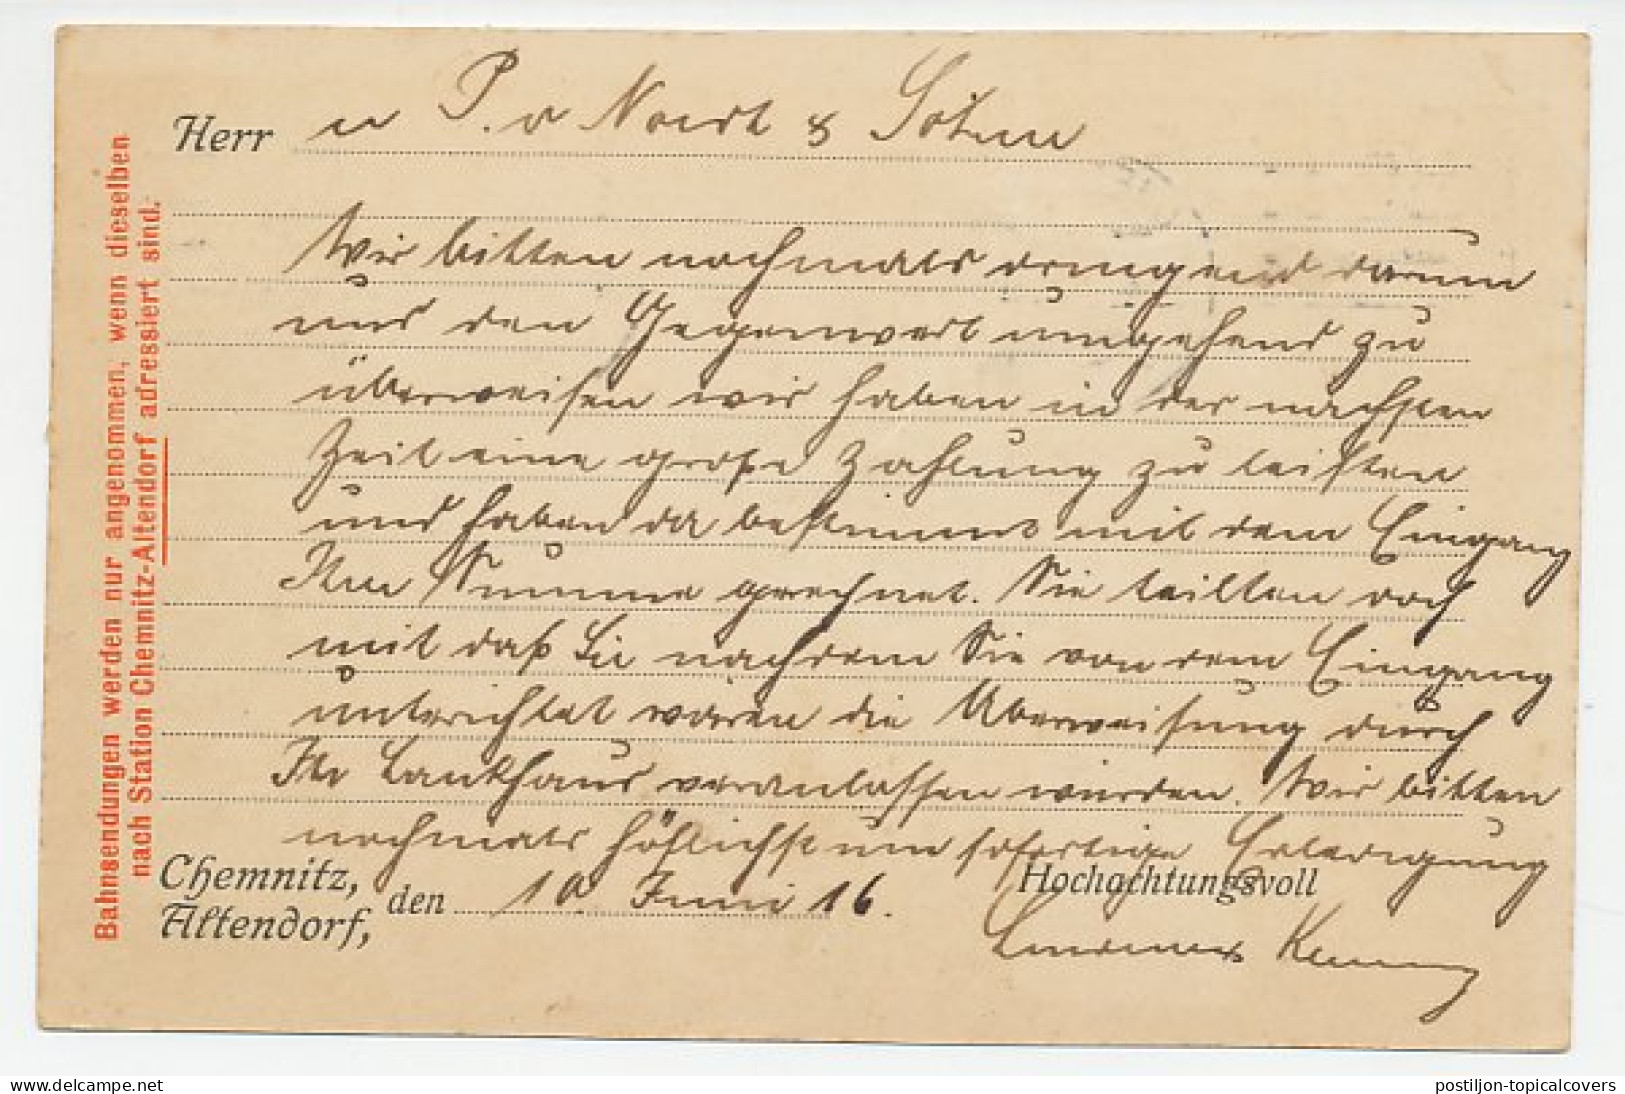 Bahnsendungen werden nur angenommen, wenn dieselben
nach Station Chemnitz-Altendorf adressiert sind.
Herrn P. v Noort & Söhne
Wir bitten nochmals dringend darum
uns den Gegenwert umgehend zu
überweisen wir haben in der nächsten
Zeit eine große Zahlung zu leisten
und haben da bestimmt mit dem Eingang
Ihrer Summe gerechnet. Sie teilten doch
mit daß Sie nachdem Sie von dem Eingang
unterichtet wären die Überweisung durch
Ihr Bankhaus veranlassen würden. Wir bitten
nochmals höflichst um sofortige Erledigung
Chemnitz, Altendorf, den 10. Juni 16.
Hochachtungsvoll
postiljon-topicalcovers
www.delcampe.net